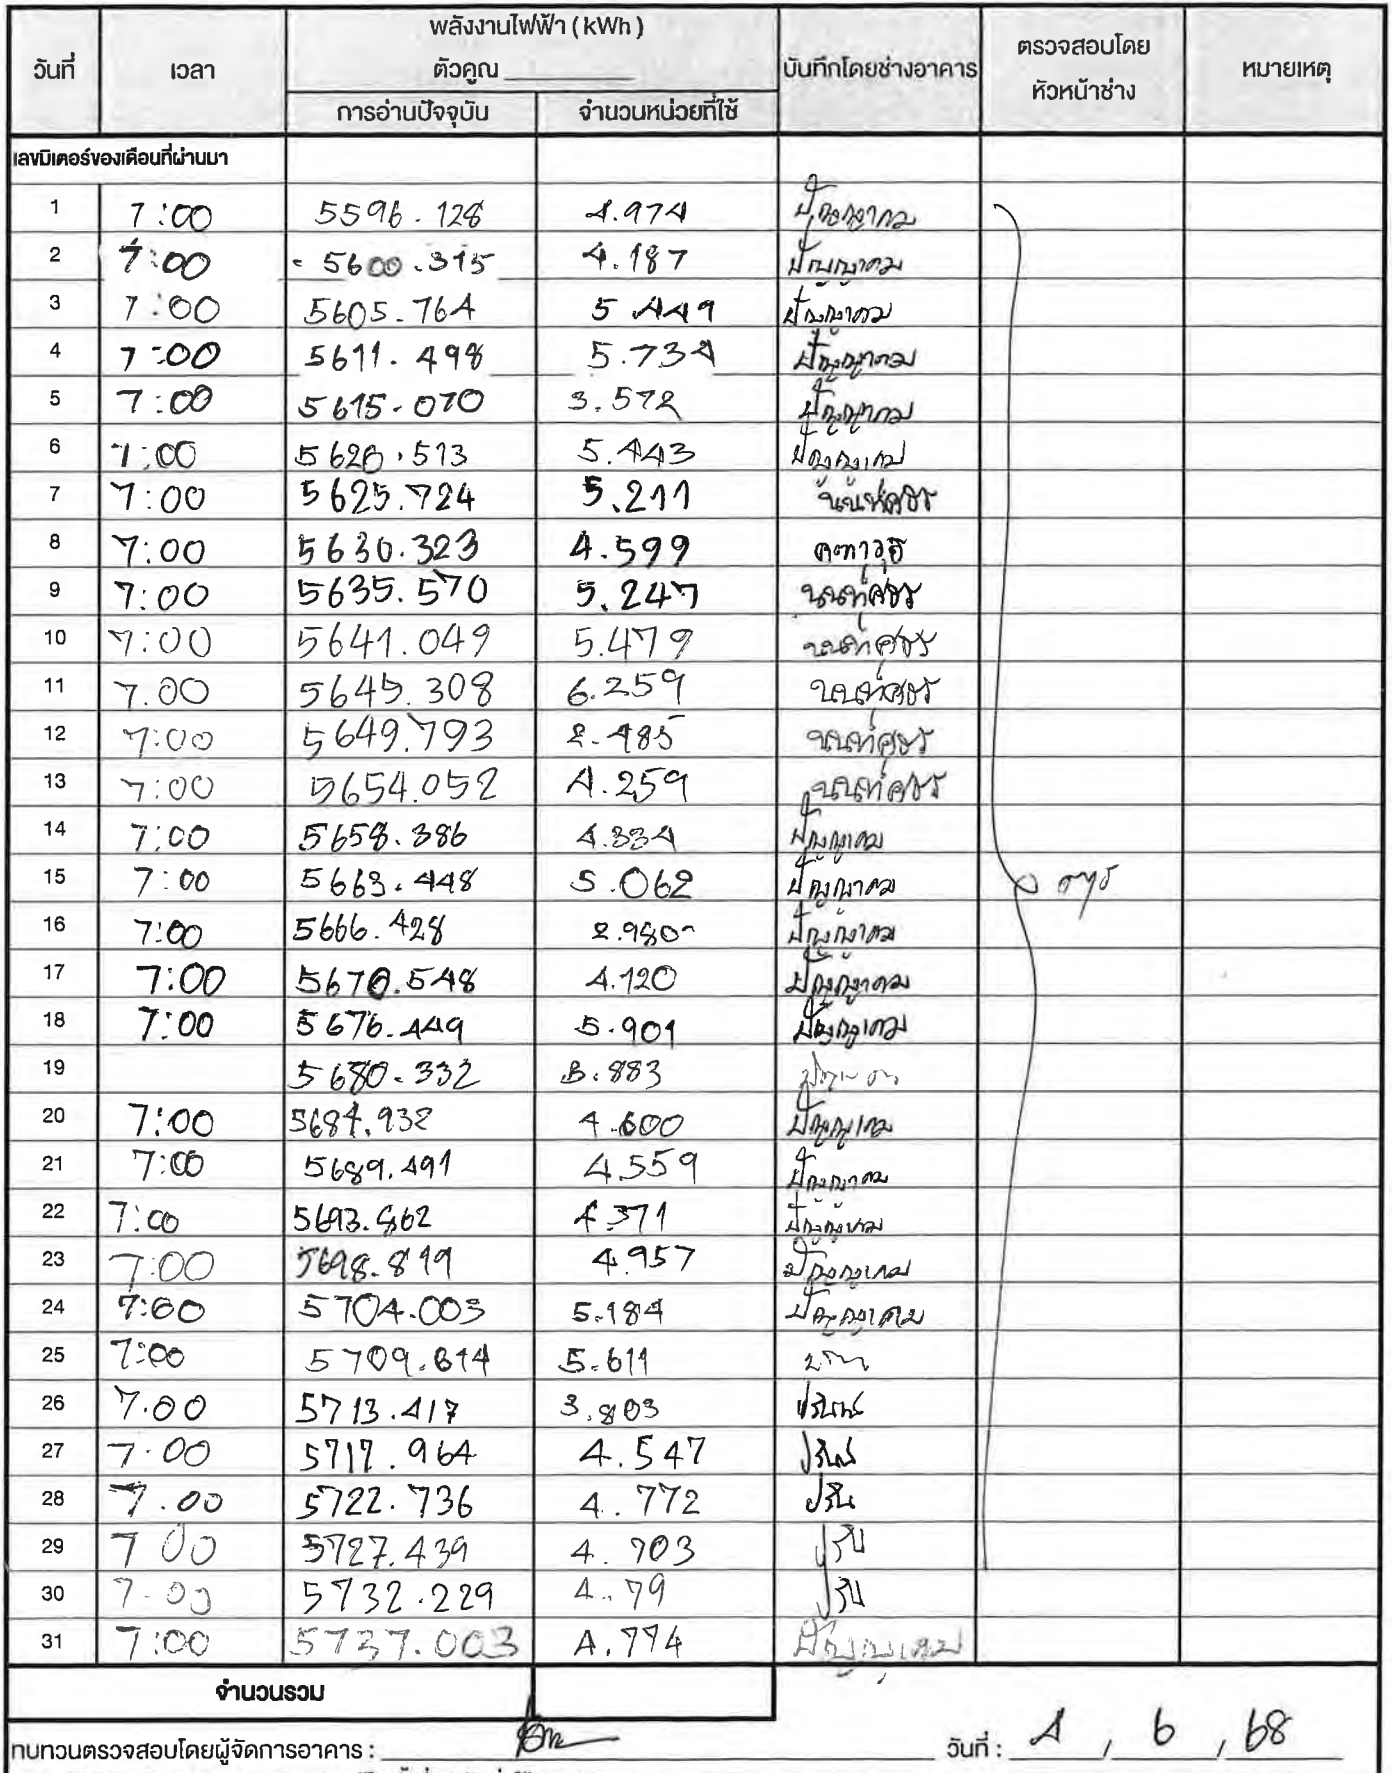 พลังงานไฟฟ้า ( kWh )
วันที่ เวลา ตัวคูณ บันทึกโดยช่างอาคาร ตรวจสอบโดย หัวหน้าช่าง หมายเหตุ
การอ่านปัจจุบัน จำนวนหน่วยที่ใช้
เลขมิเตอร์ของเดือนที่ผ่านมา
1 7:00 5596.128 4.974 ปัญญาคม
2 7:00 5600.315 4.187 ปัญญาคม
3 7:00 5605.764 5.449 ปัญญาคม
4 7:00 5611.498 5.734 ปัญญาคม
5 7:00 5615.070 3.572 ปัญญาคม
6 7:00 5620.513 5.443 ปัญญาคม
7 7:00 5625.724 5.211
8 7:00 5630.323 4.599 คฑาวุธ
9 7:00 5635.570 5.247
10 7:00 5641.049 5.479
11 7.00 5645.308 6.259
12 7:00 5649.793 2.485
13 7:00 5654.052 4.259
14 7:00 5658.386 4.334 ปัญญาคม
15 7:00 5663.448 5.062 ปัญญาคม
16 7:00 5666.428 2.980 ปัญญาคม
17 7:00 5670.548 4.120 ปัญญาคม
18 7:00 5676.449 5.901 ปัญญาคม
19 5680.332 3.883
20 7:00 5684.932 4.600 ปัญญาคม
21 7:00 5689.491 4.559 ปัญญาคม
22 7:00 5693.862 4.371 ปัญญาคม
23 7:00 5698.819 4.957 ปัญญาคม
24 7:00 5704.003 5.184 ปัญญาคม
25 7:00 5709.614 5.611
26 7.00 5713.417 3.803
27 7.00 5717.964 4.547
28 7.00 5722.736 4.772
29 7 00 5727.439 4.703
30 7.00 5732.229 4.79
31 7:00 5737.003 4.774 ปัญญาคม
จำนวนรวม
ทบทวนตรวจสอบโดยผู้จัดการอาคาร : วันที่ : 4 , 6 , 68